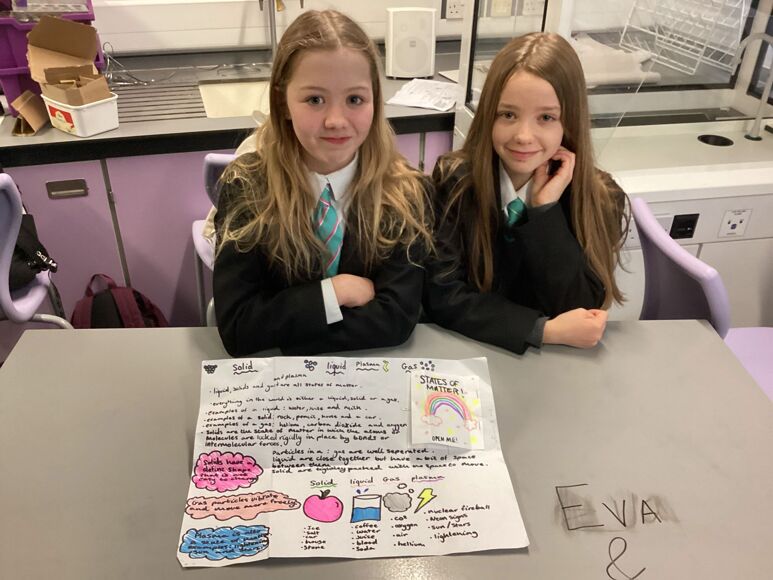 Solid liquid Plasma Gas
and plasma
• liquid, solids and gas are all states of matter.
• everything in the world is either a liquid, solid or a gas.
• examples of a liquid: water, juise and milk.
• examples of a solid: rock, pencil, house and a car.
• examples of a gas: helium, carbon dioxide and oxygen
• Solids are the state of matter in which the atoms or
molecules are locked rigidly in place by bonds or
intermolecular forces.
STATES OF
MATTER!
OPEN ME!
Particles in a: gas are well seperated.
liquid are close together but have a bit of space
between them
solid are tightly packed with no space to move.
Solids have a
define shape
that is not
easy to change
Gas particles vibrate
and move more freely
Plasma is also
a state of matter
examples: lightning
Solid liquid Gas plasma
• Ice
• salt
• car
• house
• stone
• coffee
• water
• juise
• blood
• soda
• co2
• oxygen
• air
• helium
• nuclear fireball
• Neon signs
• sun/stars
• lightening
EVA
&